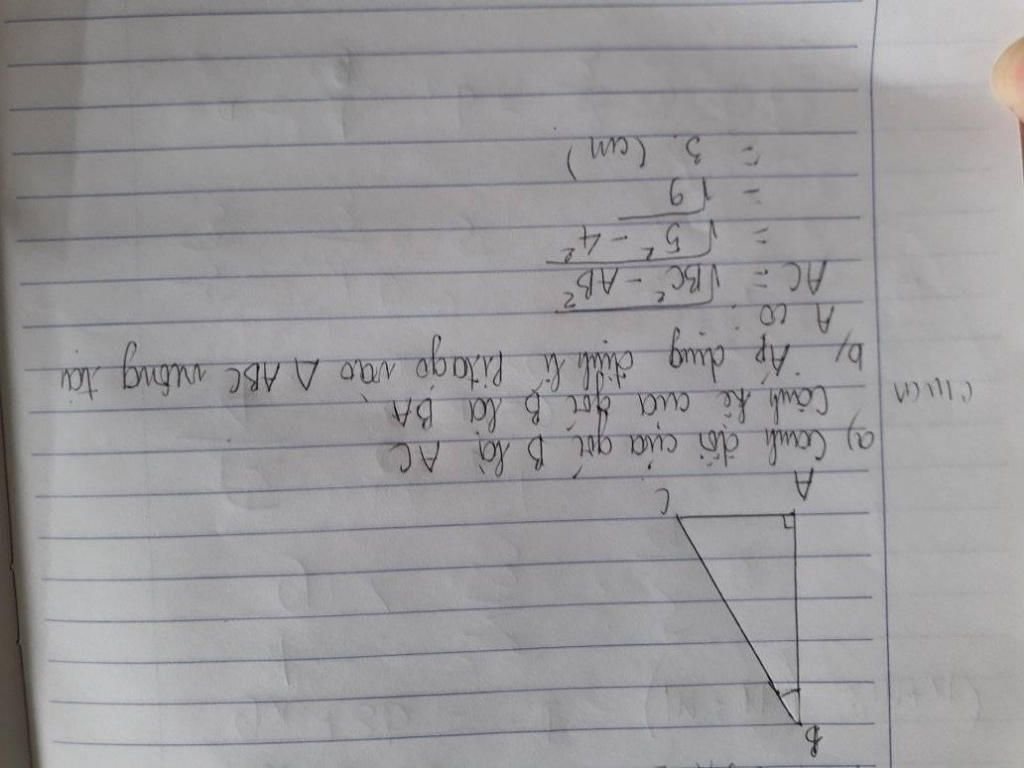 B
A C
a) Cạnh đối của góc B là AC
Cạnh kề của góc B là BA
b) Áp dụng định lí Pitago vào Δ ABC vuông tại
A có:
AC = √BC² - AB²
= √5² - 4²
= √9
= 3 (cm)